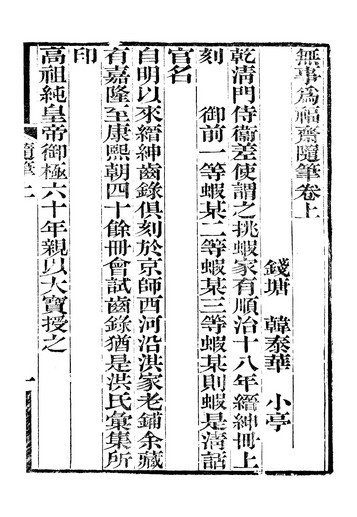 無事爲福齋隨筆卷上
錢塘 韓泰華 小亭
乾清門侍衞差使謂之挑蝦家有順治十八年縉紳冊上
刻 御前一等蝦某二等蝦某三等蝦某則蝦是清話
官名
自明以來縉紳齒錄俱刻於京師西河沿洪家老鋪余藏
有嘉隆至康熙朝四十餘冊會試齒錄猶是洪氏彙集所
印
高祖純皇帝御極六十年親以大寶授之
隨筆上 一